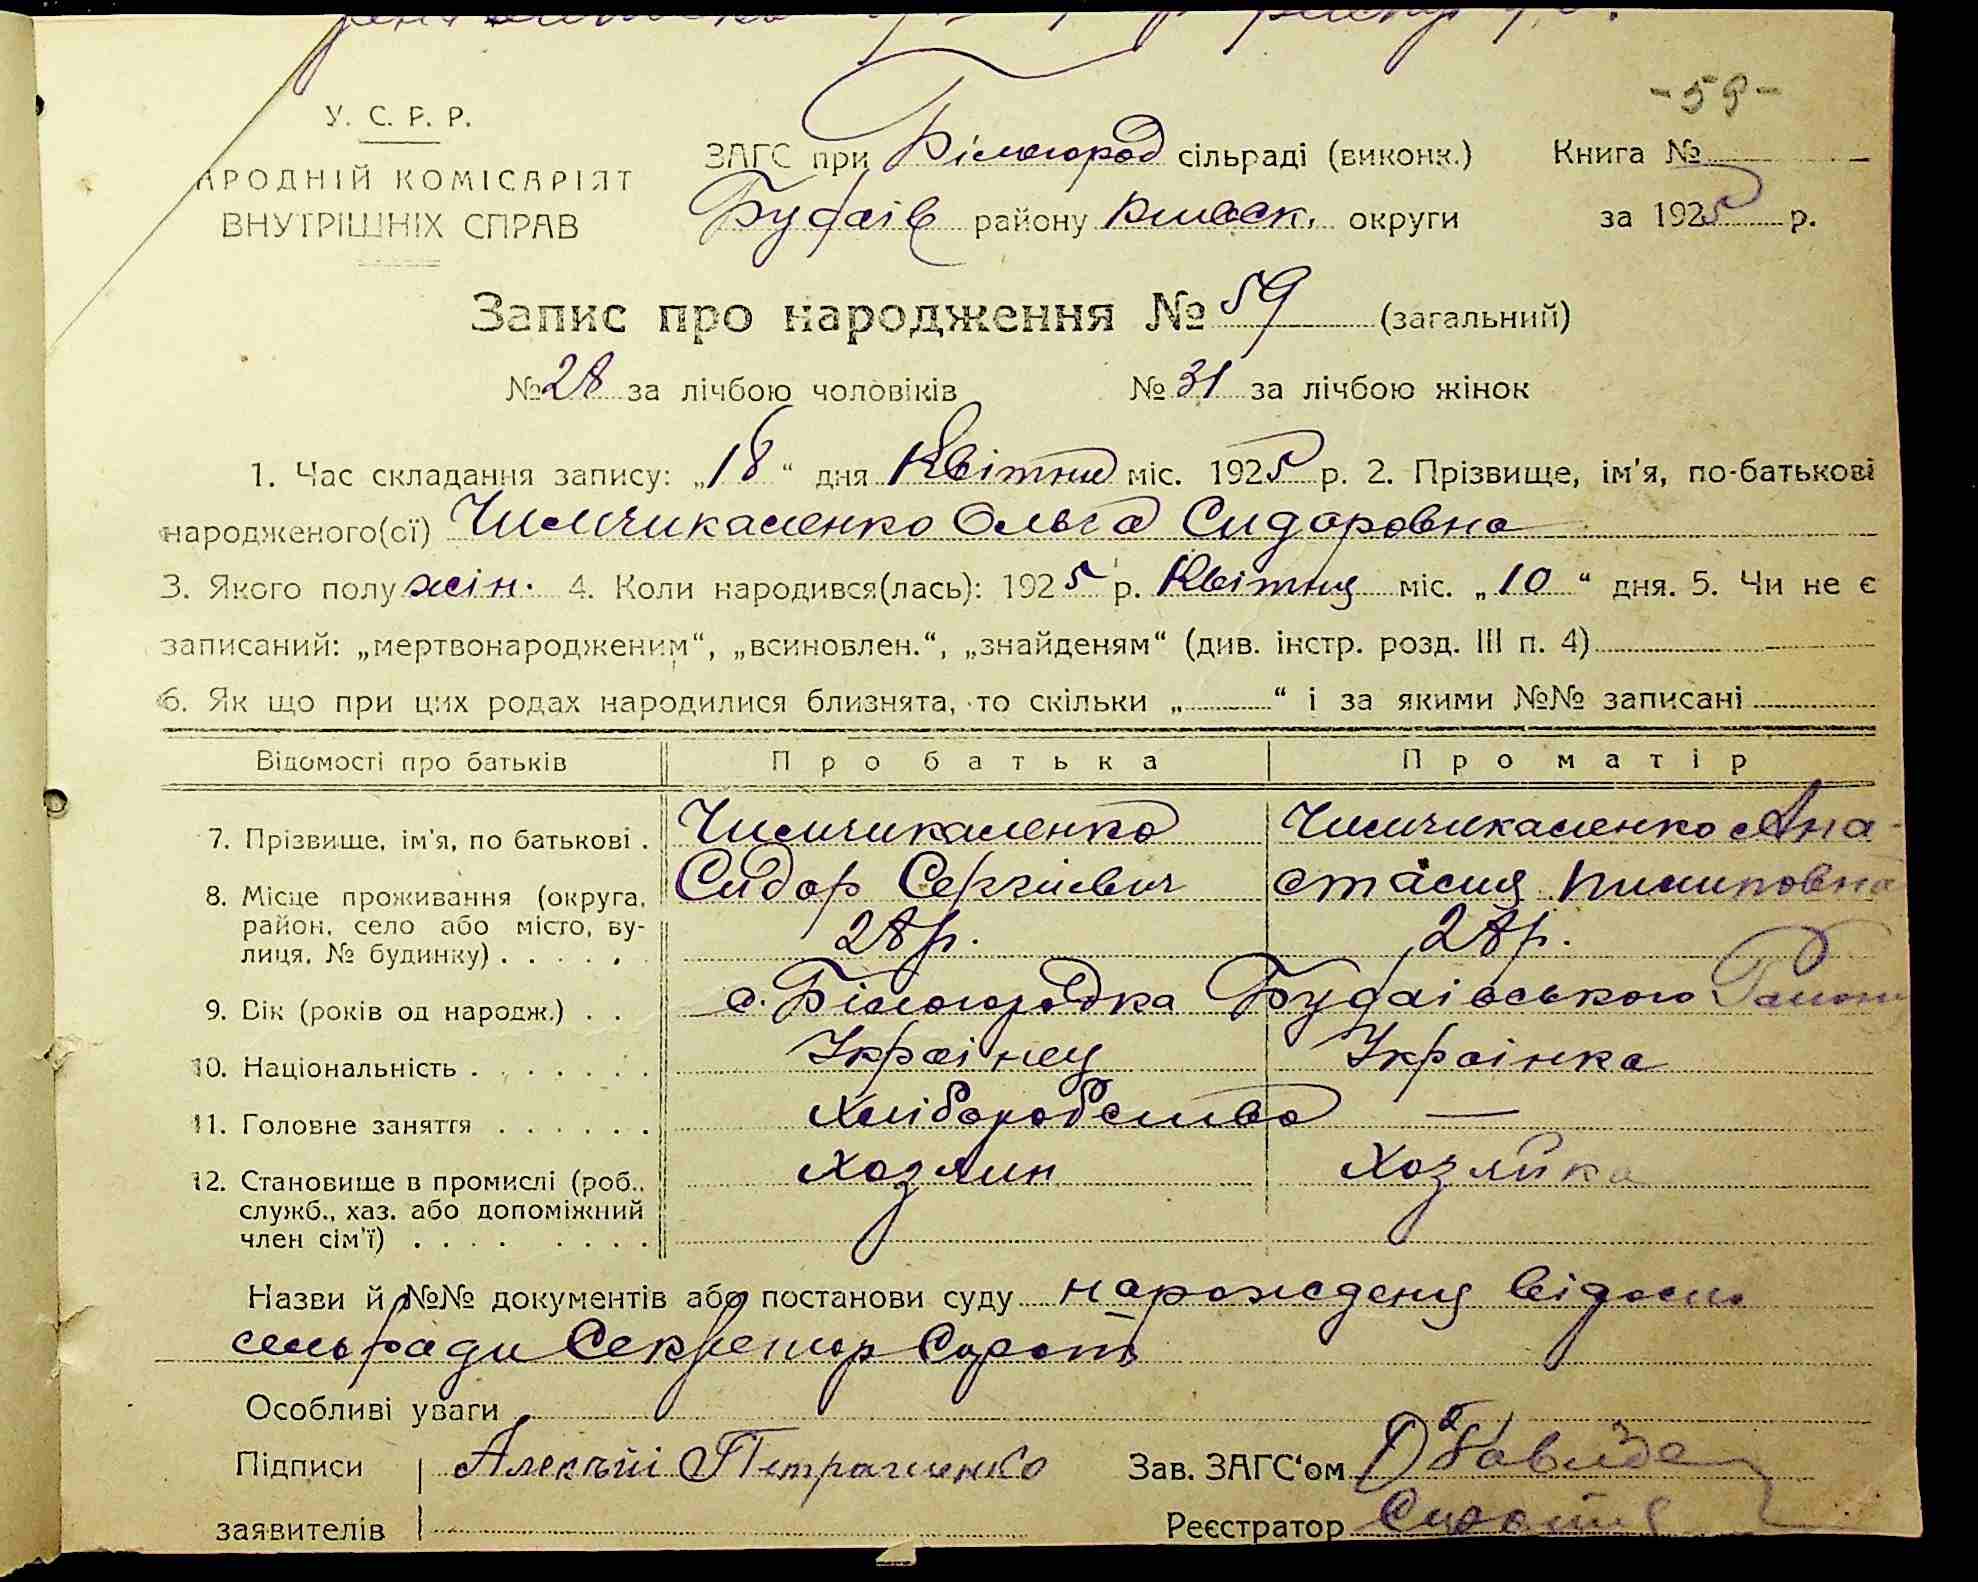 -59-
У. С. Р. Р.
АРОДНІЙ КОМІСАРІЯТ
ВНУТРІШНІХ СПРАВ
ЗАГС при Білогород сільраді (виконк.) Книга №
Будаїв району Київск. округи за 1925 р.
Запис про народження № 59 (загальний)
№ 28 за лічбою чоловіків № 31 за лічбою жінок
1. Час складання запису: „18“ дня Квітня міс. 1925 р. 2. Прізвище, ім'я, по-батькові
народженого(сї) Чимчикаленко Ольга Сидоровна
3. Якого полу жін. 4. Коли народився(лась): 1925 р. Квітня міс. „10“ дня. 5. Чи не є
записаний: „мертвонародженим“, „всиновлен.“, „знайденям“ (див. інстр. розд. III п. 4)
6. Як що при цих родах народилися близнята, то скільки „ “ і за якими №№ записані
Відомості про батьків Про батька Про матір
7. Прізвище, ім'я, по батькові . Чимчикаленко Чимчикаленко Ана-
Сидор Сергіевич стасия Пилиповна
8. Місце проживання (округа,
район, село або місто, ву-
лиця, № будинку) . . . . . 28 р. 28 р.
9. Вік (років од народж.) . . с. Білогородка Будаівського Району
10. Національність . . . . . . . Украінец Украінка
11. Головне заняття . . . . . . Хліборобство —
12. Становище в промислі (роб., Хозяин Хозяйка
служб., хаз. або допоміжний
член сім'ї) . . . . . . . .
Назви й №№ документів або постанови суду нарождения відомо
сельради Секретар
Особливі уваги
Підписи Алексій Петраченко Зав. ЗАГС‘ом
заявителів Реєстратор